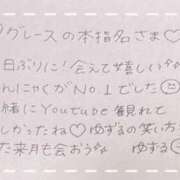 グレースの本指名さま♡
日ぶりに！会えて嬉しい
んにゃくがNO.1でした☺
緒にYoutube観れて
しかったね♡ゆずるの笑い方
た来月も会おうな ゆずる